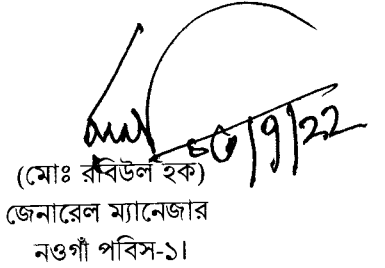 (মোঃ রবিউল হক)
জেনারেল ম্যানেজার
নওগাঁ পবিস-১।